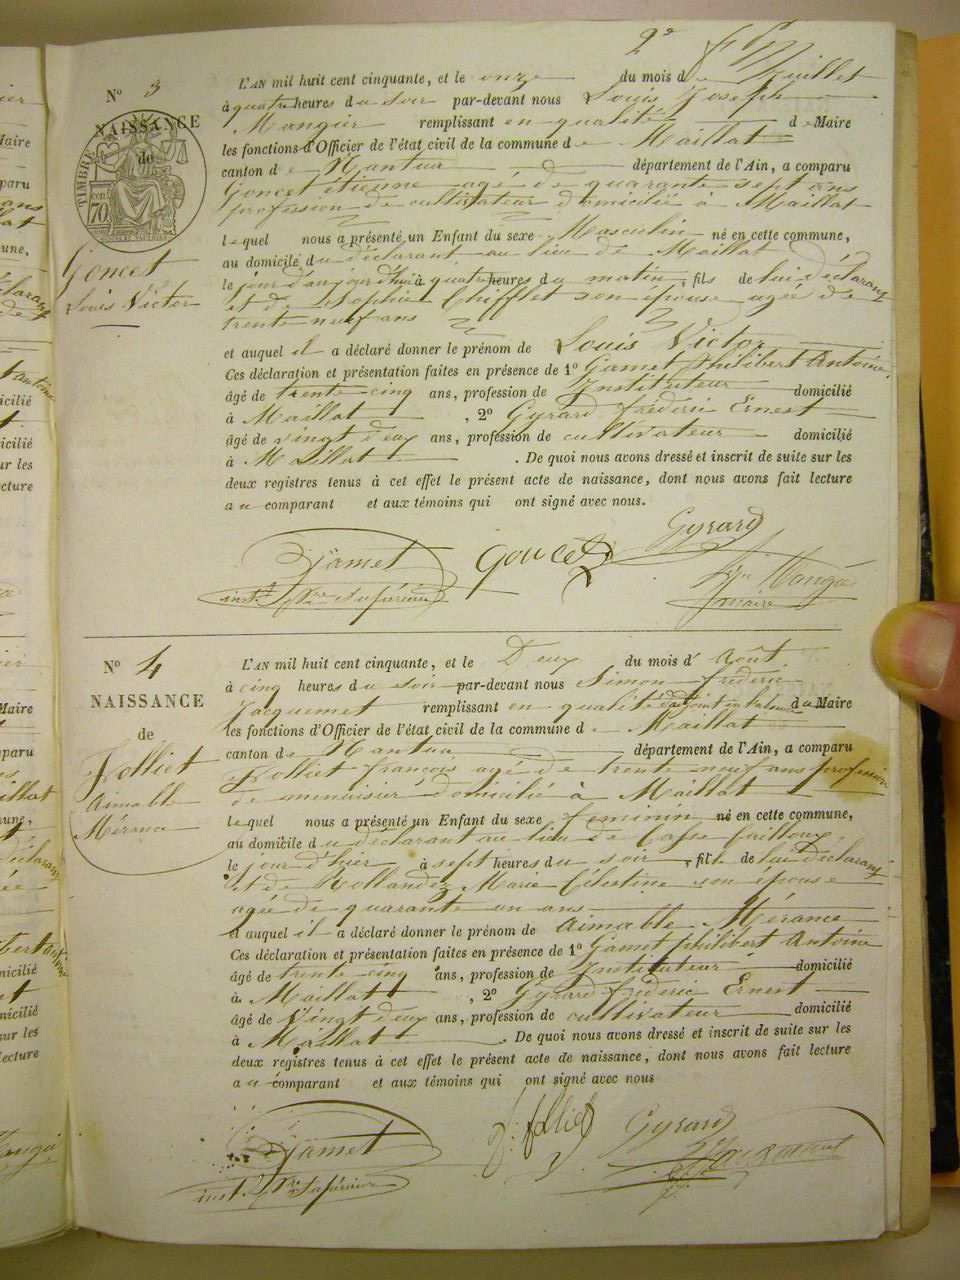 2e
N° 3
NAISSANCE
de
TIMBRE
70
Goncet
Louis Victor
L'AN mil huit cent cinquante, et le onze du mois de Juillet
à quatre heures du soir par-devant nous Louis Joseph
Mangier remplissant en qualité de Maire
les fonctions d'Officier de l'état civil de la commune de Maillat
canton de Nantua département de l'Ain, a comparu
Goncet étienne agé de quarante sept ans
profession de cultivateur domicilié à Maillat
lequel nous a présenté un Enfant du sexe Masculin né en cette commune,
au domicile du déclarant au lieu de Maillat
le jour d'aujourd'hui à quatre heures du matin, fils de lui déclarant
et de Sophie Chifflet son épouse agée de
trente neuf ans
et auquel il a déclaré donner le prénom de Louis Victor
Ces déclaration et présentation faites en présence de 1° Gamet Philibert Antoine
âgé de trente cinq ans, profession de Instituteur domicilié
à Maillat, 2° Gyrard fréderic Ernest
âgé de vingt deux ans, profession de cultivateur domicilié
à Maillat. De quoi nous avons dressé et inscrit de suite sur les
deux registres tenus à cet effet le présent acte de naissance, dont nous avons fait lecture
au comparant et aux témoins qui ont signé avec nous.
Gyrard
Gamet goncet
inst. supérieur maire
N° 4
NAISSANCE
de
Folliet
Aimable
Mérance
L'AN mil huit cent cinquante, et le Deux du mois d'Août
à cinq heures du soir par-devant nous Simon fréderic
Jacquemet remplissant en qualité d'adjoint du Maire
les fonctions d'Officier de l'état civil de la commune de Maillat
canton de Nantua département de l'Ain, a comparu
Folliet françois agé de trente neuf ans profession
de menuisier domicilié à Maillat
lequel nous a présenté un Enfant du sexe féminin né en cette commune,
au domicile du déclarant au lieu de
le jour d'hier à sept heures du soir, fille de lui déclarant
et de Rollandez Marie Célestine son épouse
agée de quarante un ans
et auquel il a déclaré donner le prénom de Aimable Mérance
Ces déclaration et présentation faites en présence de 1° Gamet Philibert Antoine
âgé de trente cinq ans, profession de Instituteur domicilié
à Maillat, 2° Gyrard fréderic Ernest
âgé de Vingt deux ans, profession de cultivateur domicilié
à Maillat. De quoi nous avons dressé et inscrit de suite sur les
deux registres tenus à cet effet le présent acte de naissance, dont nous avons fait lecture
au comparant et aux témoins qui ont signé avec nous
f. folliet Gyrard
Gamet
inst. supérieur